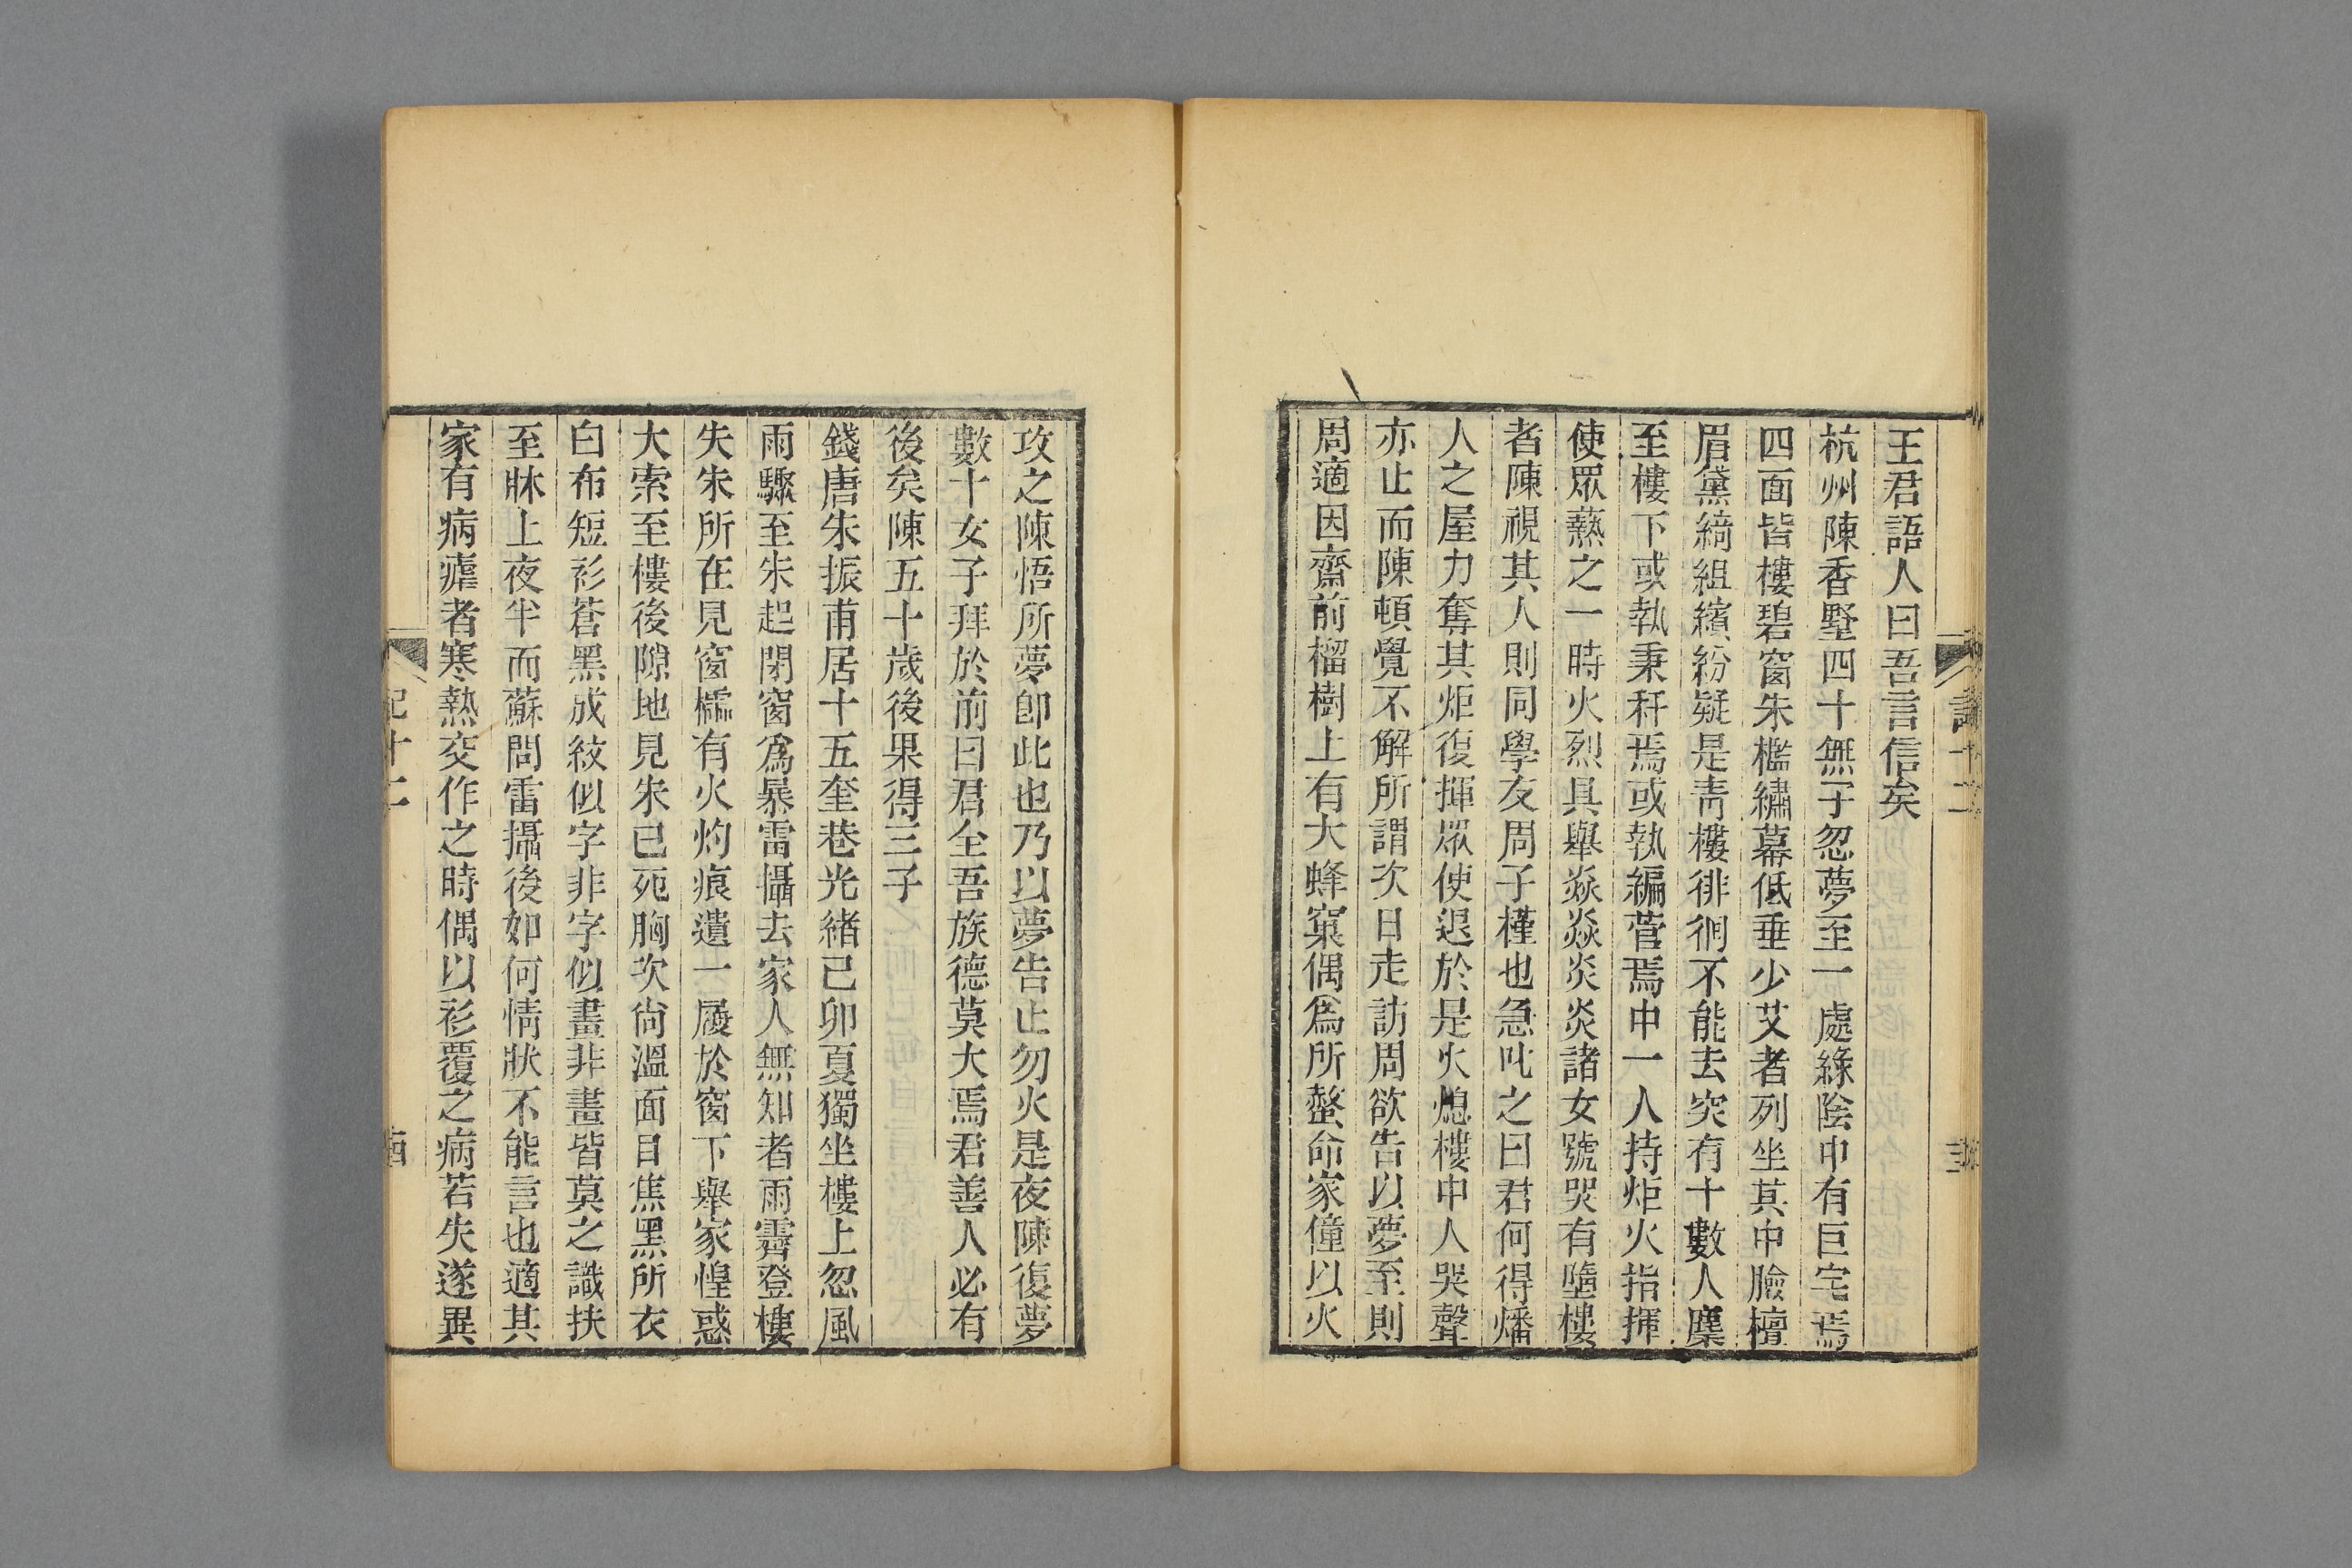 王君語人曰吾言信矣
杭州陳香墅四十無子忽夢至一處綠陰中有巨宅焉
四面皆樓碧窗朱檻繡幕低垂少艾者列坐其中臉檀
眉黛綺組繽紛疑是靑樓徘徊不能去突有十數人麇
至樓下或執秉秆焉或執編菅焉中一人持炬火指揮
使眾爇之一時火烈具舉焱焱炎炎諸女號哭有墮樓
者陳視其人則同學友周子槿也急叱之曰君何得燔
人之屋力奪其炬復揮眾使退於是火熄樓中人哭聲
亦止而陳頓覺不解所謂次日走訪周欲告以夢至則
周適因齋前榴樹上有大蜂窠偶爲所螫命家僮以火
攻之陳悟所夢卽此也乃以夢告止勿火是夜陳復夢
數十女子拜於前曰君全吾族德莫大焉君善人必有
後矣陳五十歲後果得三子
錢唐朱振甫居十五奎巷光緒己卯夏獨坐樓上忽風
雨驟至朱起閉窗爲暴雷攝去家人無知者雨霽登樓
失朱所在見窗櫺有火灼痕遺一屨於窗下舉家惶惑
大索至樓後隙地見朱已死胸次尙溫面目焦黑所衣
白布短衫蒼黑成紋似字非字似畫非畫皆莫之識扶
至牀上夜半而蘇問雷攝後如何情狀不能言也適其
家有病瘧者寒熱交作之時偶以衫覆之病若失遂異
記十二